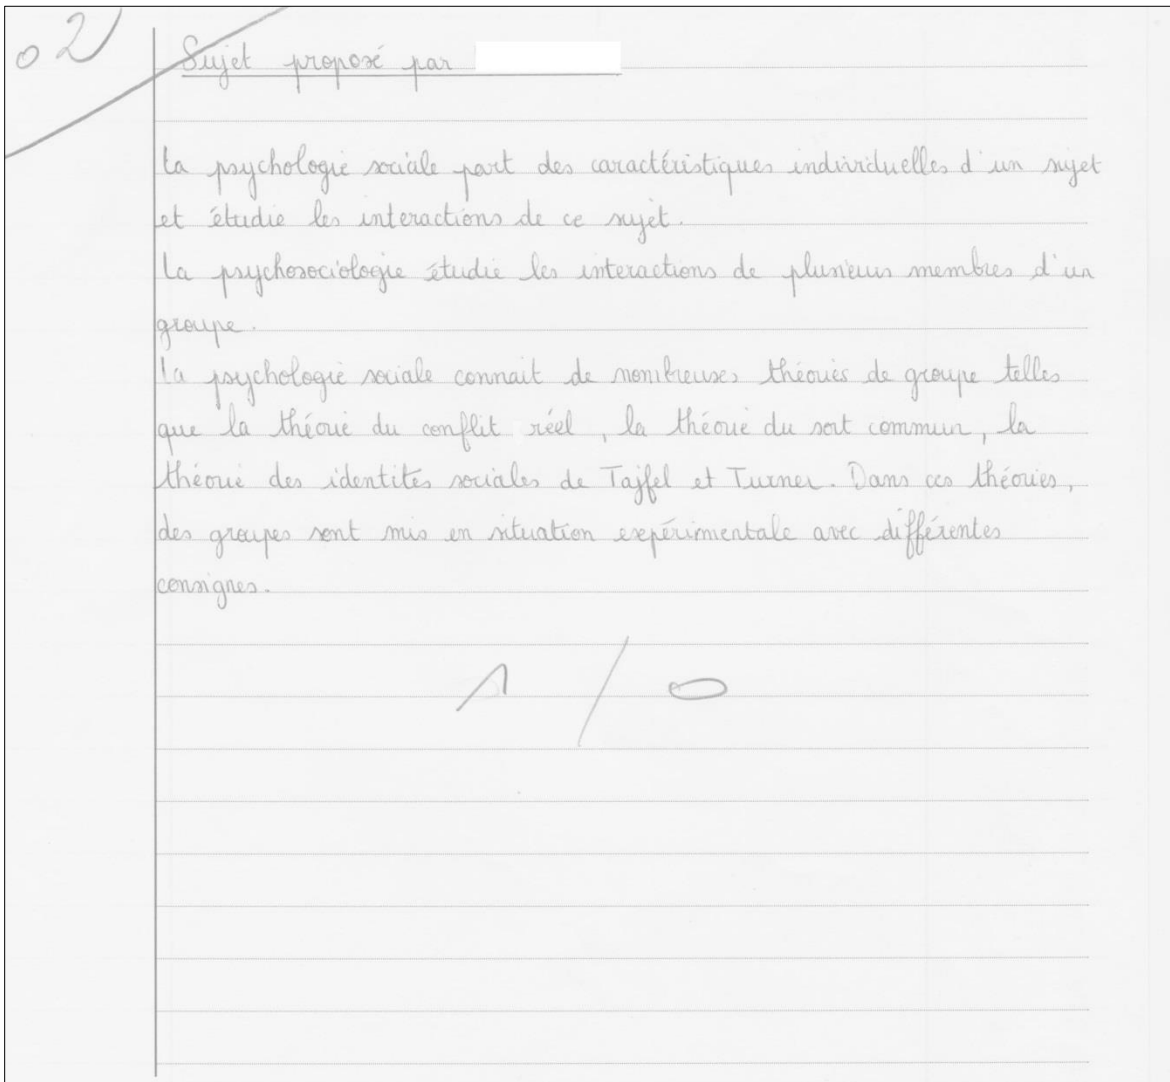 02
Sujet proposé par
La psychologie sociale part des caractéristiques individuelles d'un sujet
et étudie les interactions de ce sujet.
La psychosociologie étudie les interactions de plusieurs membres d'un
groupe.
La psychologie sociale connait de nombreuses théories de groupe telles
que la théorie du conflit réel, la théorie du sort commun, la
théorie des identités sociales de Tajfel et Turner. Dans ces théories,
des groupes sont mis en situation expérimentale avec différentes
consignes.
1 / 0